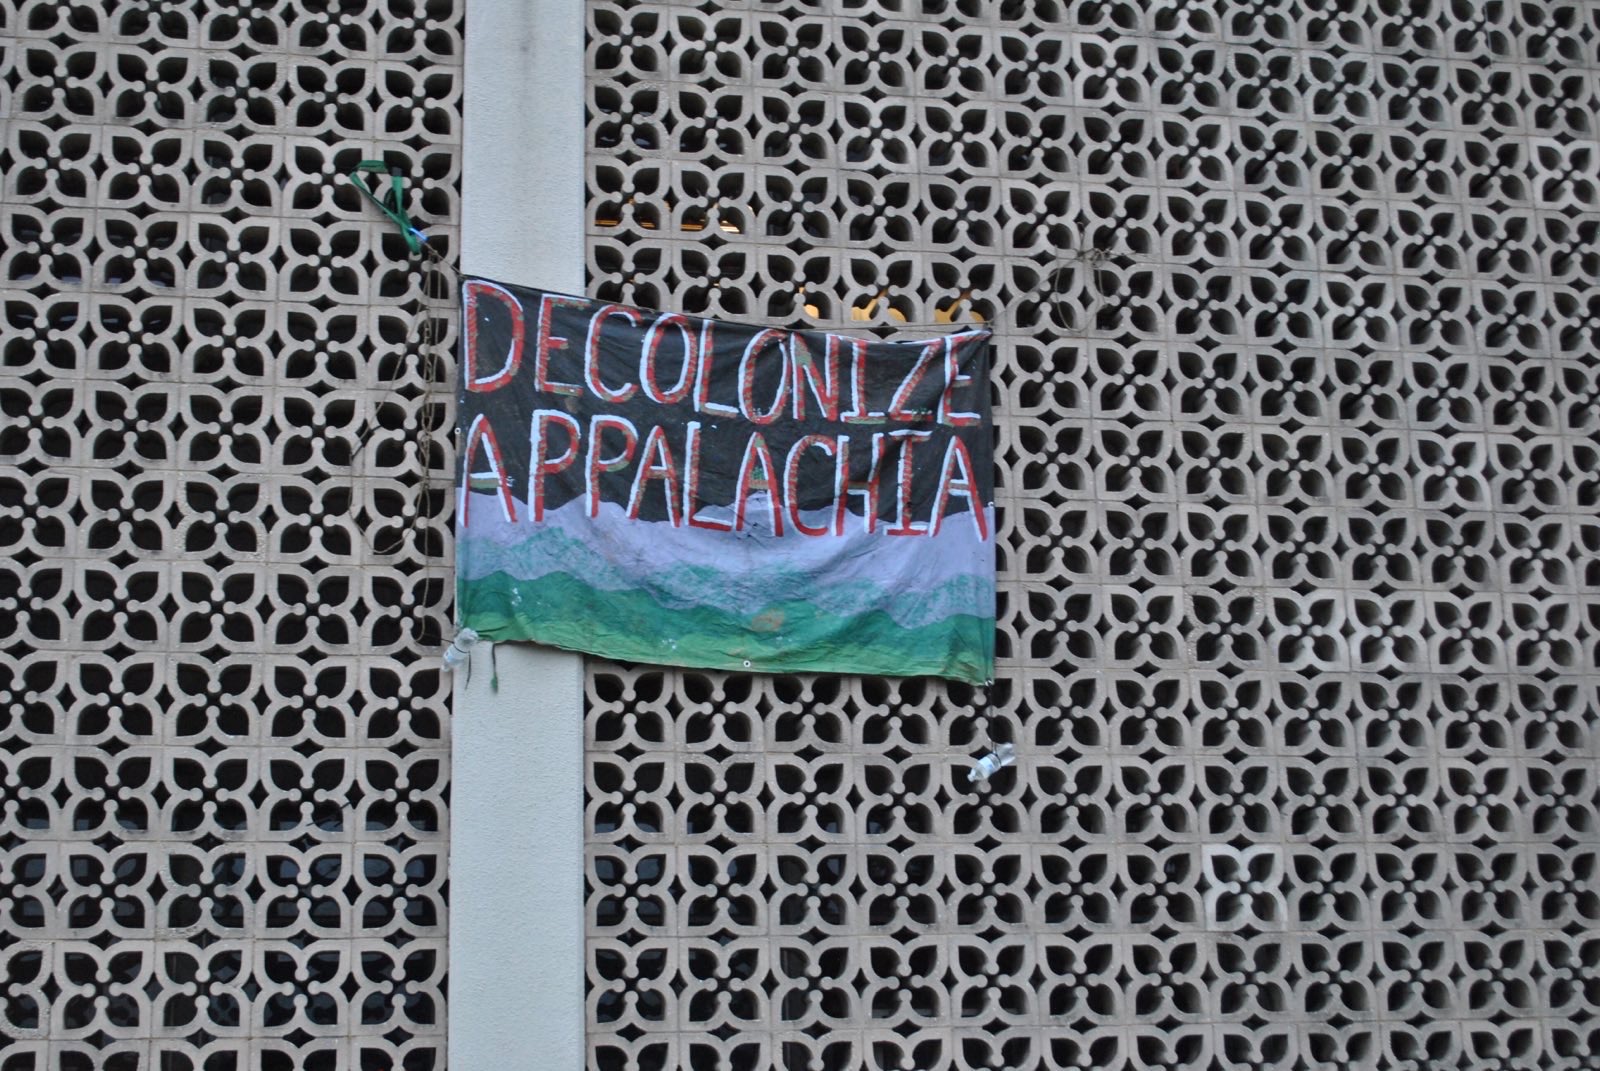 DECOLONIZE
APPALACHIA